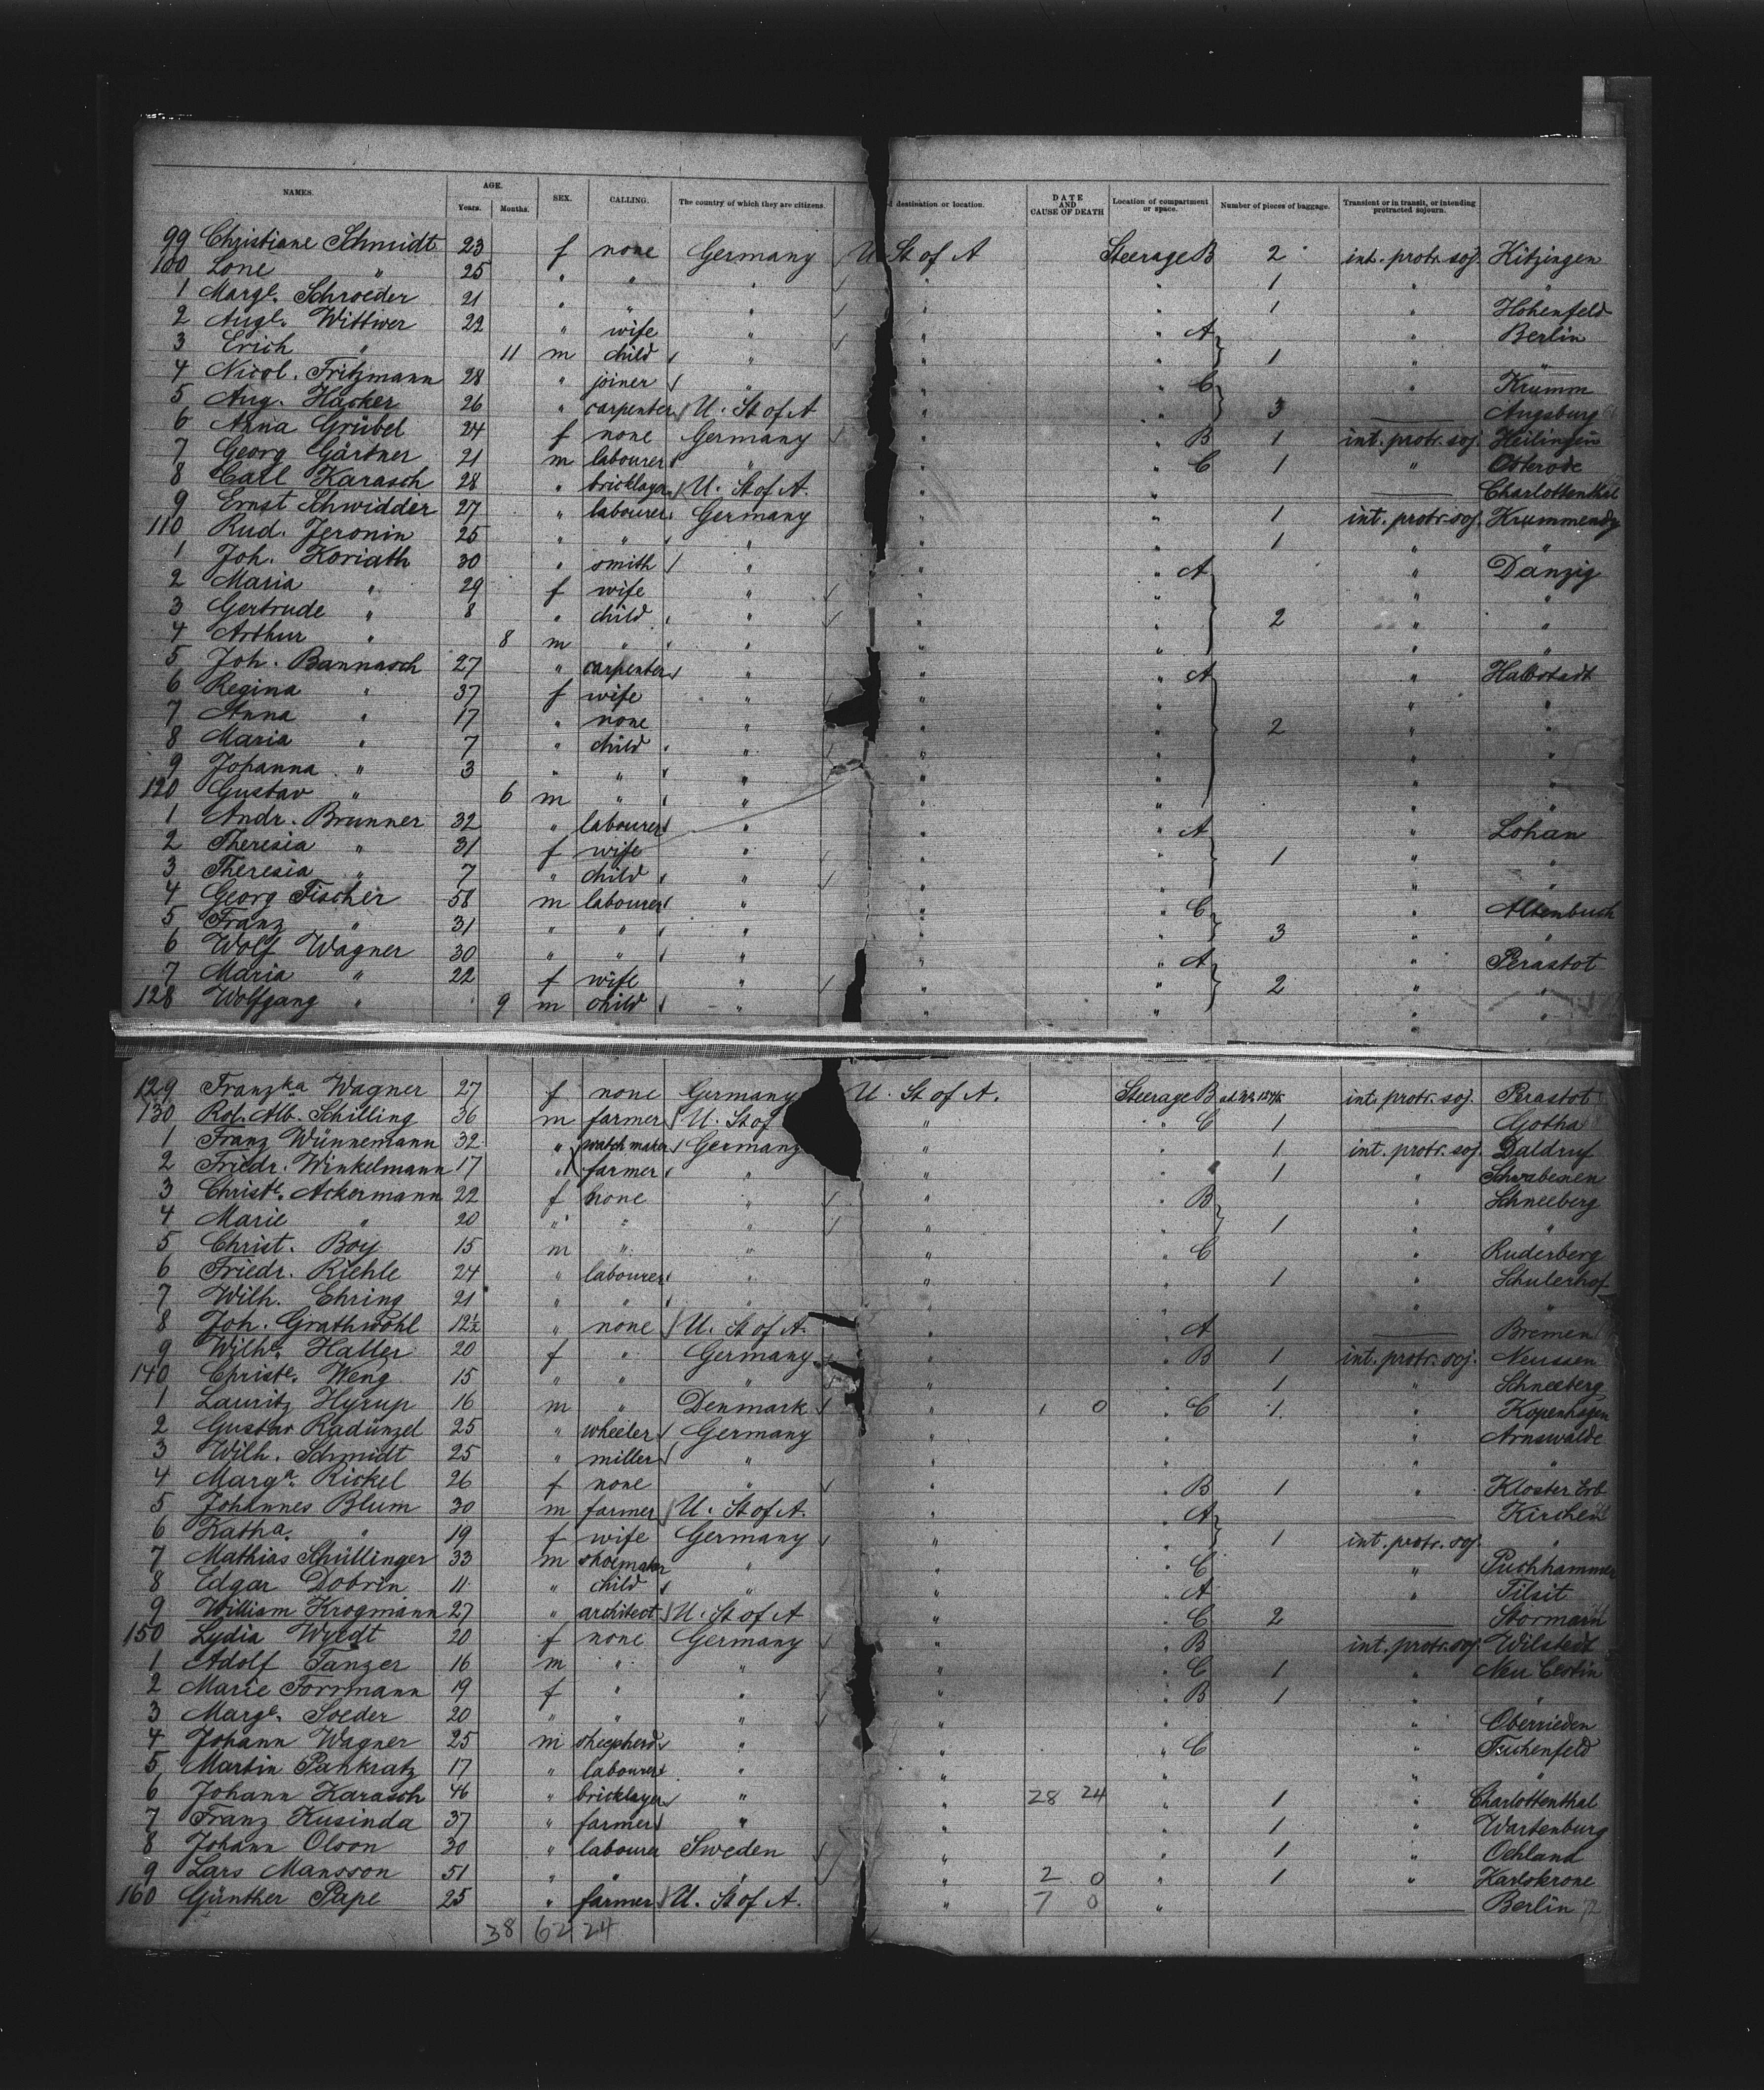 NAMES. AGE. Years. Months. SEX. CALLING. The country of which they are citizens. d destination or location. DATE AND CAUSE OF DEATH Location of compartment or space. Number of pieces of baggage. Transient or in transit, or intending protracted sojourn.
99 Christiane Schmidt 23 f none Germany U St of A Steerage B 2 int. protr. soj. Kitzingen
100 Lone " 25 " " " " " 1 " "
1 Margt. Schroeder 21 " " " " " 1 " Hohenfeld
2 Augt. Wittwer 22 " wife " " " A " Berlin
3 Erich " 11 m child " " 1 " "
4 Nicol. Fritzmann 28 " joiner " " " C " Krumm
5 Aug. Hacker 26 " carpenter U. St of A " " 3 — Augsburg
6 Anna Grübel 24 f none Germany " " B 1 int. protr. soj. Heilingen
7 Georg Gärtner 21 m labourer " " " C 1 " Osterode
8 Carl Karasch 28 " bricklayer U. St of A. " " — Charlottenthal
9 Ernst Schwidder 27 " labourer Germany " " 1 int. protr. soj. Krummendy
110 Rud. Jeronin 25 " " " " " 1 " "
1 Joh. Koriath 30 " smith " " " A " Danzig
2 Maria " 29 f wife " " " " "
3 Gertrude " 8 " child " " " 2 " "
4 Arthur " 8 m " " " " " "
5 Joh. Bannasch 27 " carpenter " " " A " Halbstadt
6 Regina " 37 f wife " " " " "
7 Anna " 17 " none " " " 2 " "
8 Maria " 7 " child " " " " "
9 Johanna " 3 " " " " " " "
120 Gustav " 6 m " " " " " "
1 Andr. Brunner 32 " labourer " " " A " Lohan
2 Theresia " 31 f wife " " " 1 " "
3 Theresia " 7 " child " " " " "
4 Georg Fischer 58 m labourer " " " C " Altenbuch
5 Franz " 31 " " " " " 3 " "
6 Wolf Wagner 30 " " " " " A " Perastot
7 Maria " 22 f wife " " " 2 " "
128 Wolfgang " 9 m child " " " " "
129 Franzka Wagner 27 f none Germany U. St of A. Steerage B int. protr. soj. Perastot
130 Rol. Alb. Schilling 36 m farmer U. St of " " C 1 — Gotha
1 Franz Wünnemann 32 " watchmaker Germany " " 1 int. protr. soj. Daldruf
2 Friedr. Winkelmann 17 " farmer " " " 1 " Schwabenen
3 Christe. Ackermann 22 f none " " " B " Schneeberg
4 Marie " 20 " " " " " 1 " "
5 Christ. Boy 15 m " " " " C " Ruderberg
6 Friedr. Riehle 24 " labourer " " " 1 " Schulerhof
7 Wilh. Ehring 21 " " " " " " "
8 Joh. Grathwohl 12½ " none U. St of A. " " A — Bremen
9 Wilhe. Haller 20 f " Germany " " B 1 int. protr. soj. Neussen
140 Christe. Weng 15 " " " " " 1 " Schneeberg
1 Lauritz Hyrup 16 m " Denmark " 1 0 " C 1 " Kopenhagen
2 Gustav Radünzel 25 " wheeler Germany " " " Arnswalde
3 Wilh. Schmidt 25 " miller " " " " "
4 Marga. Rickel 26 f none " " " B 1 " Kloster Erb
5 Johannes Blum 30 m farmer U. St of A. " " A — Kirchen
6 Katha. " 19 f wife Germany " " 1 int. protr. soj. "
7 Mathias Schüllinger 33 m shoemaker " " " C " Puchhammer
8 Edgar Dobrin 11 " child " " " A " Tilsit
9 William Krogmann 27 " architect U. St of A " " C 2 — Stormarn
150 Lydia Wyedt 20 f none Germany " " B int. protr. soj. Wilstedt
1 Adolf Tanzer 16 m " " " " C 1 " Neu Cestin
2 Marie Forrmann 19 f " " " " B 1 " "
3 Marge. Soeder 20 " " " " " " Oberrieden
4 Johann Wagner 25 m sheepherd " " " C " Tuchenfeld
5 Martin Pankratz 17 " labourer " " " " "
6 Johann Karasch 46 " bricklayer " " 28 24 " 1 " Charlottenthal
7 Franz Kusinda 37 " farmer " " " 1 " Wartenburg
8 Johann Olson 30 " labourer Sweden " " 1 " Oehland
9 Lars Mansson 51 " " " " 2 0 " 1 " Karlskrone
160 Günther Pape 25 " farmer U. St of A. " 7 0 " — Berlin
38 62 24